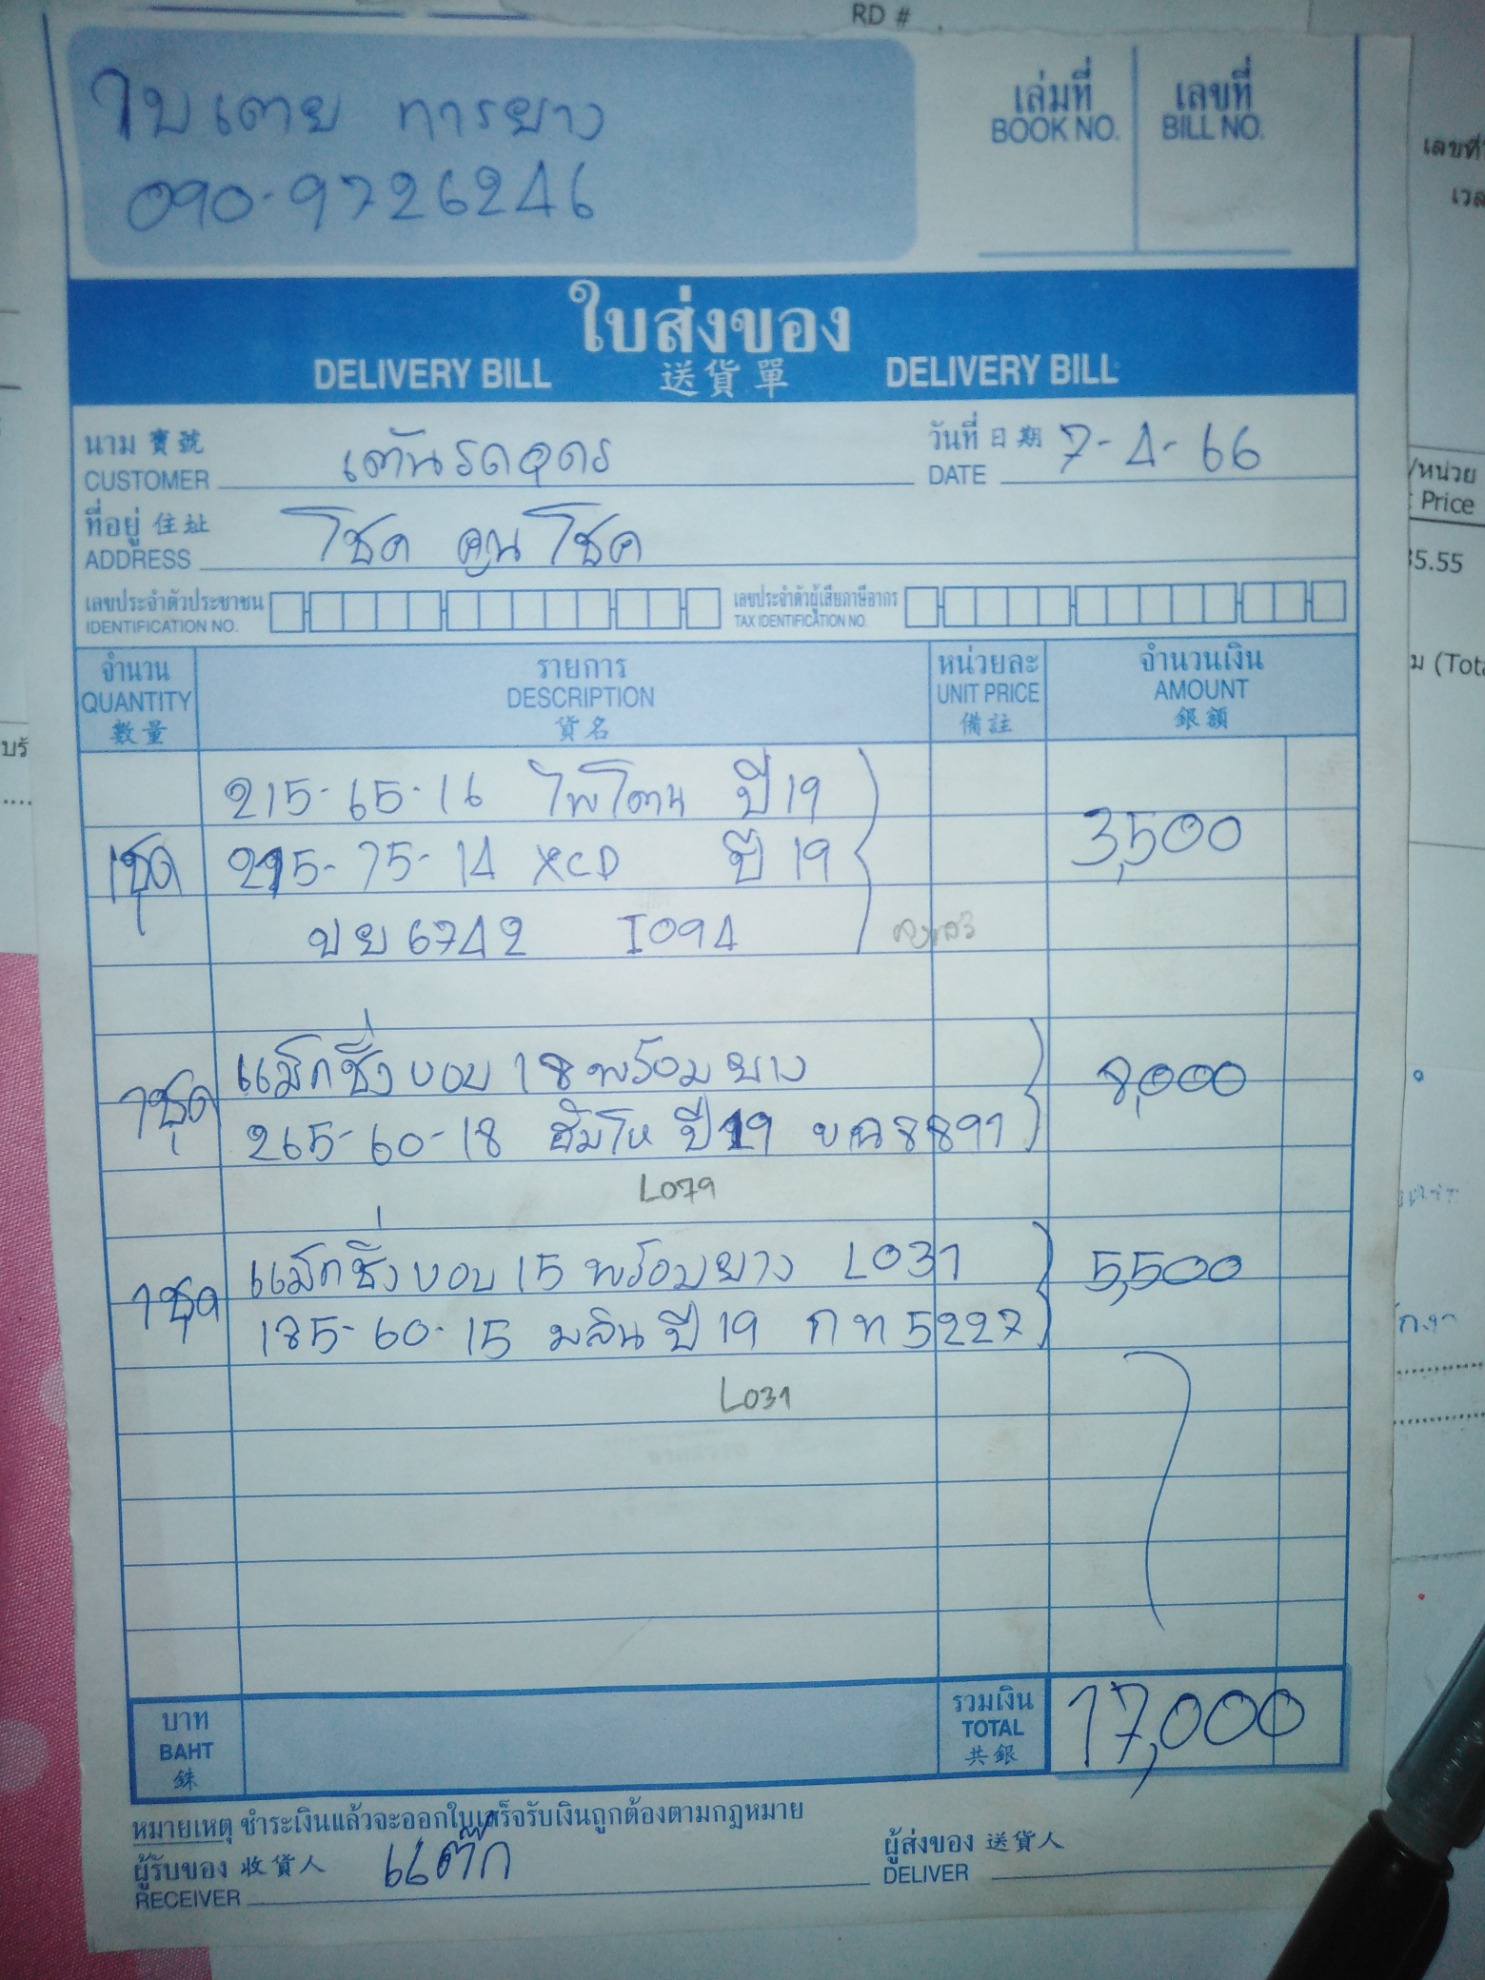 RD #
ใบเตย การยาง
090-9726246
เล่มที่ เลขที่
BOOK NO. BILL NO.
เลขที่
ใบส่งของ
DELIVERY BILL 送貨單 DELIVERY BILL
นาม 寶號 วันที่ 日期
CUSTOMER เต้นรถอุดร DATE 7-4-66
ที่อยู่ 住址
ADDRESS โชค คูณโชค
เลขประจำตัวประชาชน เลขประจำตัวผู้เสียภาษีอากร
IDENTIFICATION NO. TAX IDENTIFICATION NO.
จำนวน รายการ หน่วยละ จำนวนเงิน
QUANTITY DESCRIPTION UNIT PRICE AMOUNT
數量 貨名 備註 銀額
215-65-16 ไพโตน ปี 19
1ชุด 215-75-14 XCD ปี 19 3,500
ปย 6742 I094
แม็กซิ่ง ขอบ 18 พร้อมยาง
1ชุด 8,000
265-60-18 ฮัมโห ปี 19 ขฉ 8891
L079
แม็กซิ่ง ขอบ 15 พร้อมยาง L031 5,500
1ชุด
185-60-15 มลิน ปี 19 กท 5227
L031
บาท รวมเงิน
BAHT TOTAL 17,000
銖 共銀
หมายเหตุ ชำระเงินแล้วจะออกใบเสร็จรับเงินถูกต้องตามกฎหมาย
ผู้รับของ 收貨人 แต๊ก ผู้ส่งของ 送貨人
RECEIVER DELIVER
/หน่วย
Price
35.55
ม (Tota